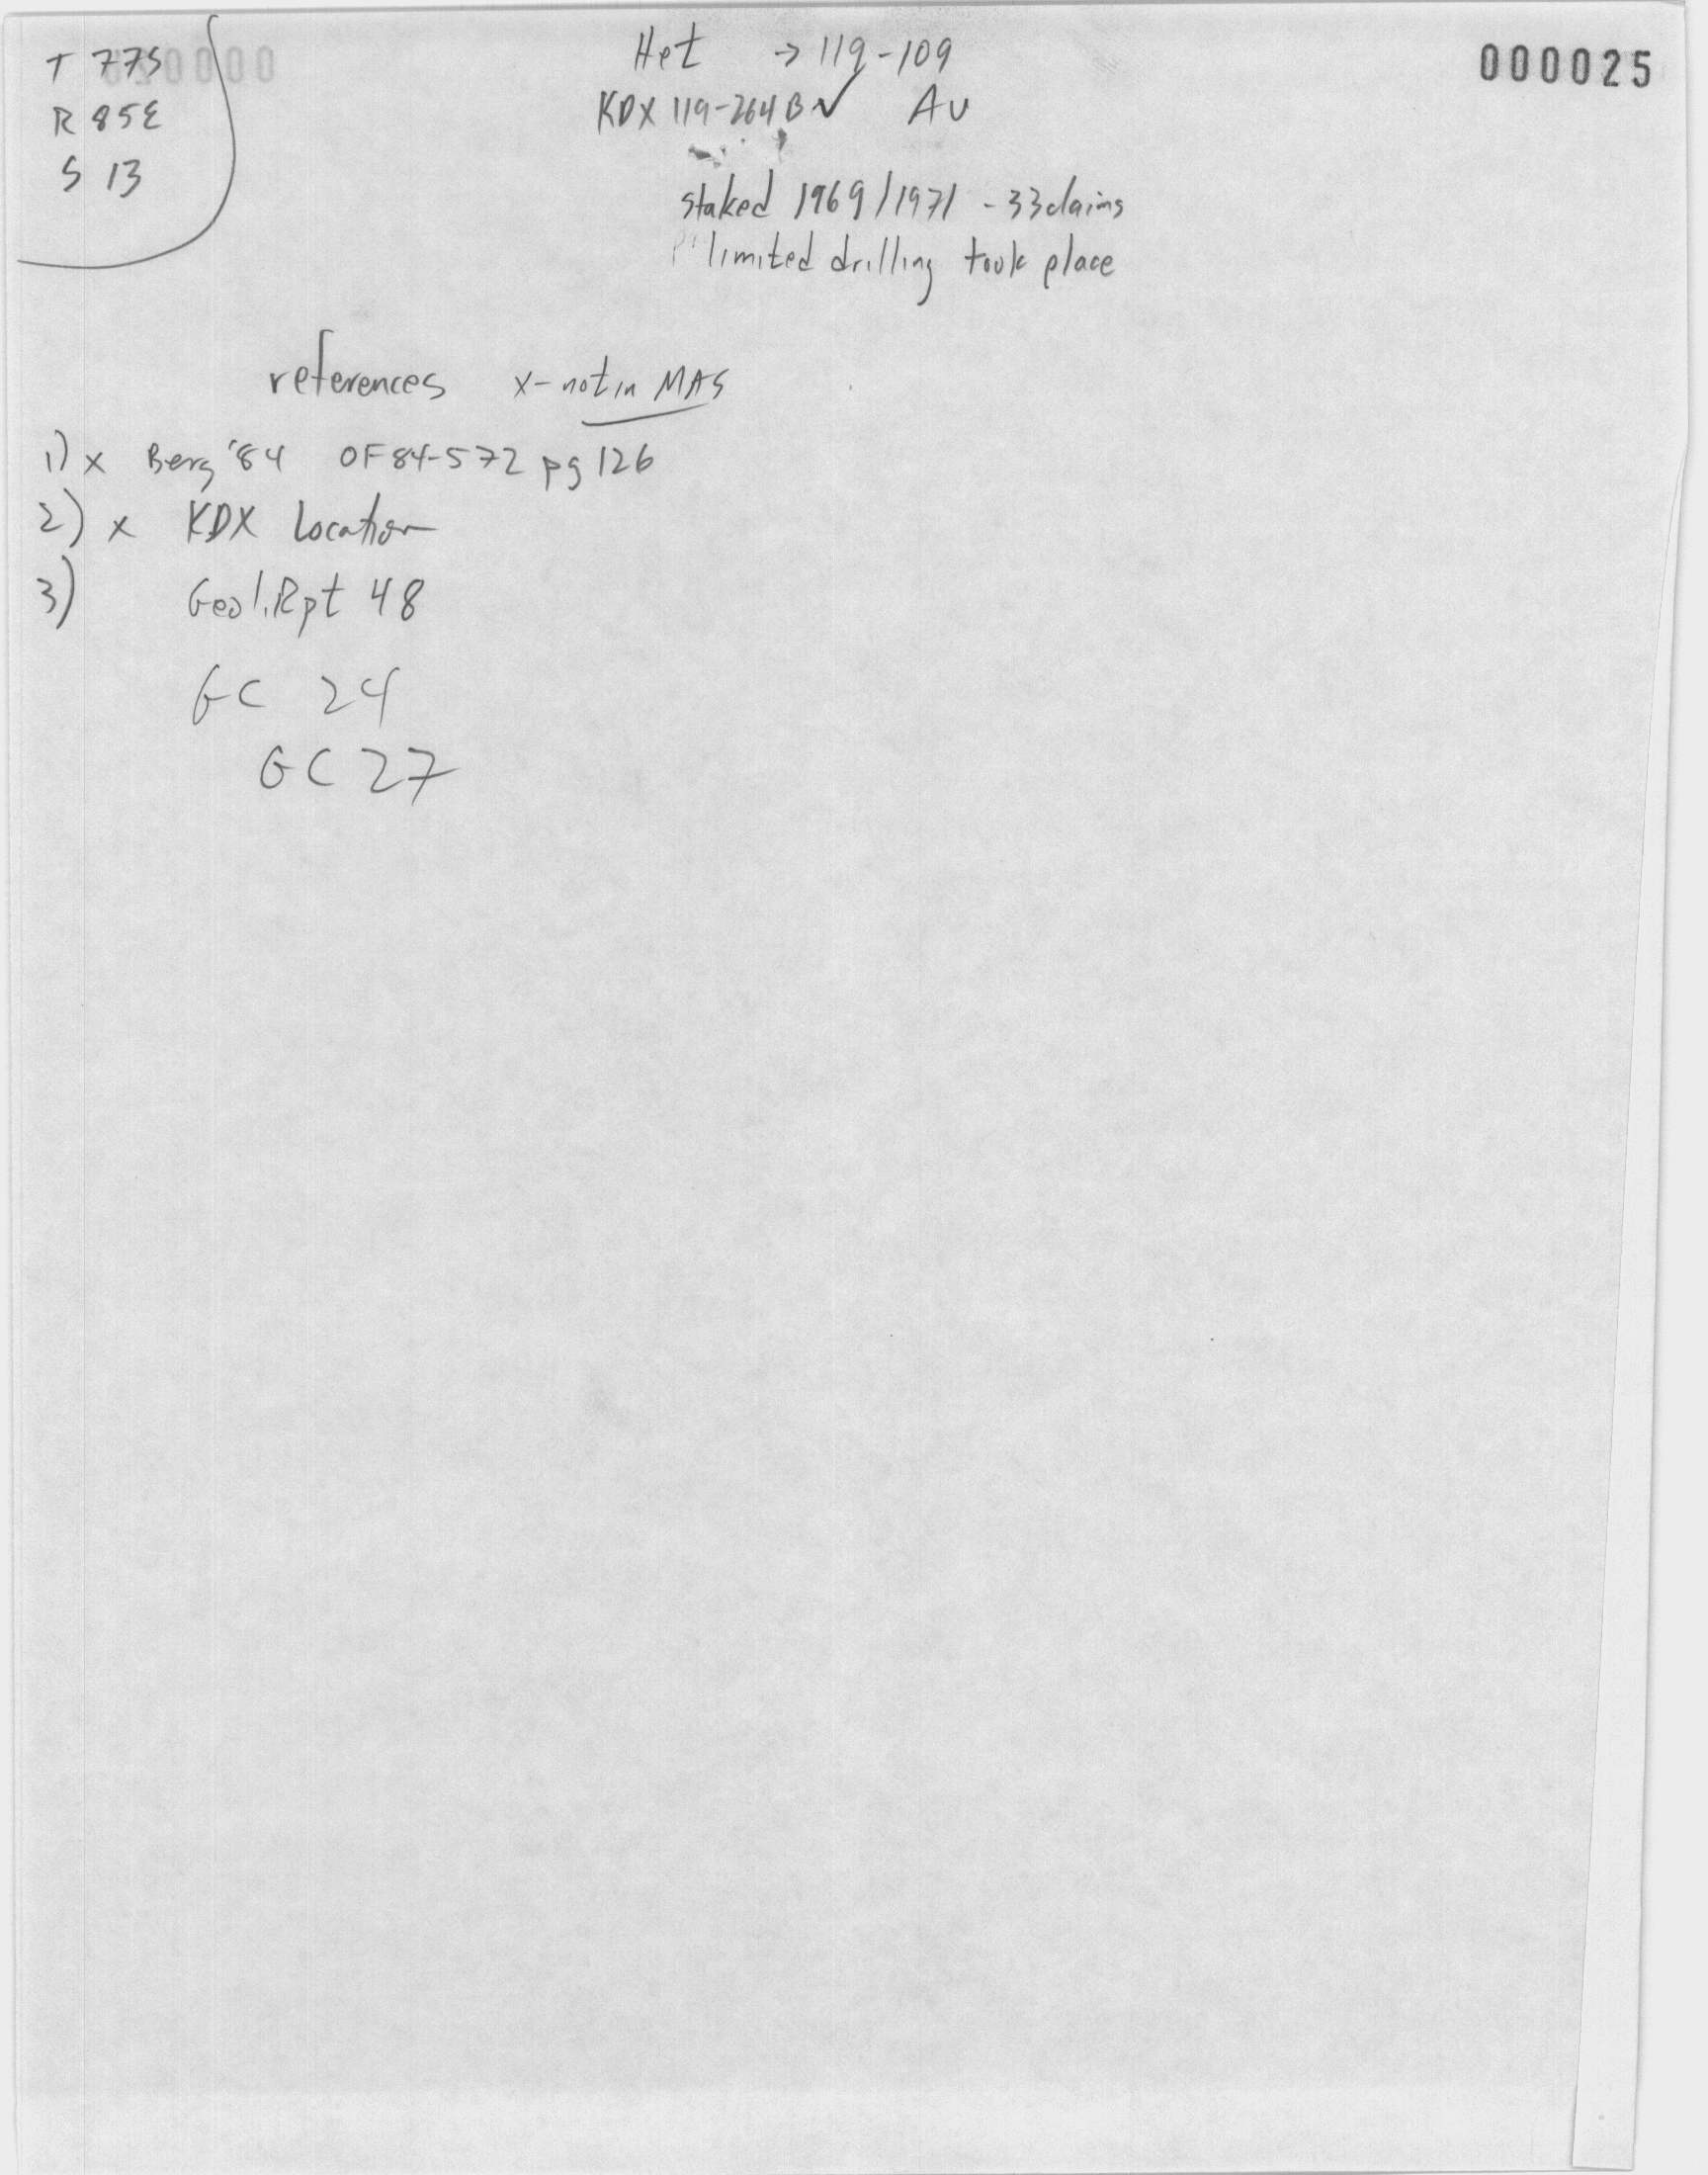 T 77S
R 85E
S 13
Het → 119-109
KDX 119-264B ✓ Au
000025
staked 1969/1971 - 33 claims
limited drilling took place
references x-not in MAS
1) x Berg '84 OF 84-572 pg 126
2) x KDX Location
3) Geol. Rpt 48
GC 24
GC 27